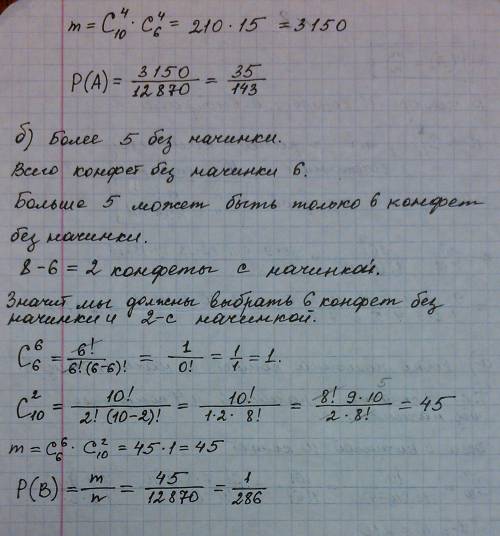 m = C₁₀⁴ · C₆⁴ = 210 · 15 = 3150
P(A) = 3150/12870 = 35/143
б) Более 5 без начинки.
Всего конфет без начинки 6.
Больше 5 может быть только 6 конфет
без начинки.
8 - 6 = 2 конфеты с начинкой.
Значит мы должны выбрать 6 конфет без
начинки и 2-с начинкой.
C₆⁶ = 6!/6!(6-6)! = 1/0! = 1/1 = 1.
C₁₀² = 10!/2!(10-2)! = 10!/1·2·8! = 8! 9·10⁵/2·8! = 45
m = C₆⁶ · C₁₀² = 45·1 = 45
P(B) = m/n = 45/12870 = 1/286